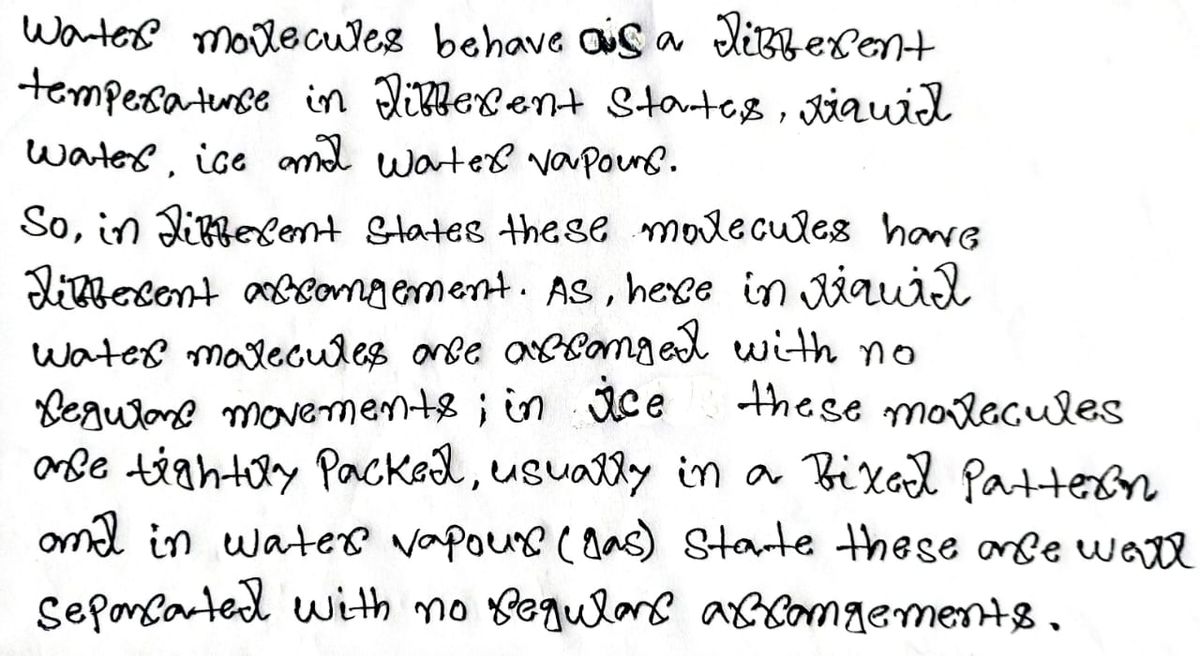 Water molecules behave as a different
temperature in different states, liquid
water, ice and water vapour.
So, in different states these molecules have
different arrangement. As, here in liquid
water molecules are arranged with no
regular movements; in ice these molecules
are tightly packed, usually in a fixed pattern
and in water vapour (gas) state these are well
separated with no regular arrangements.